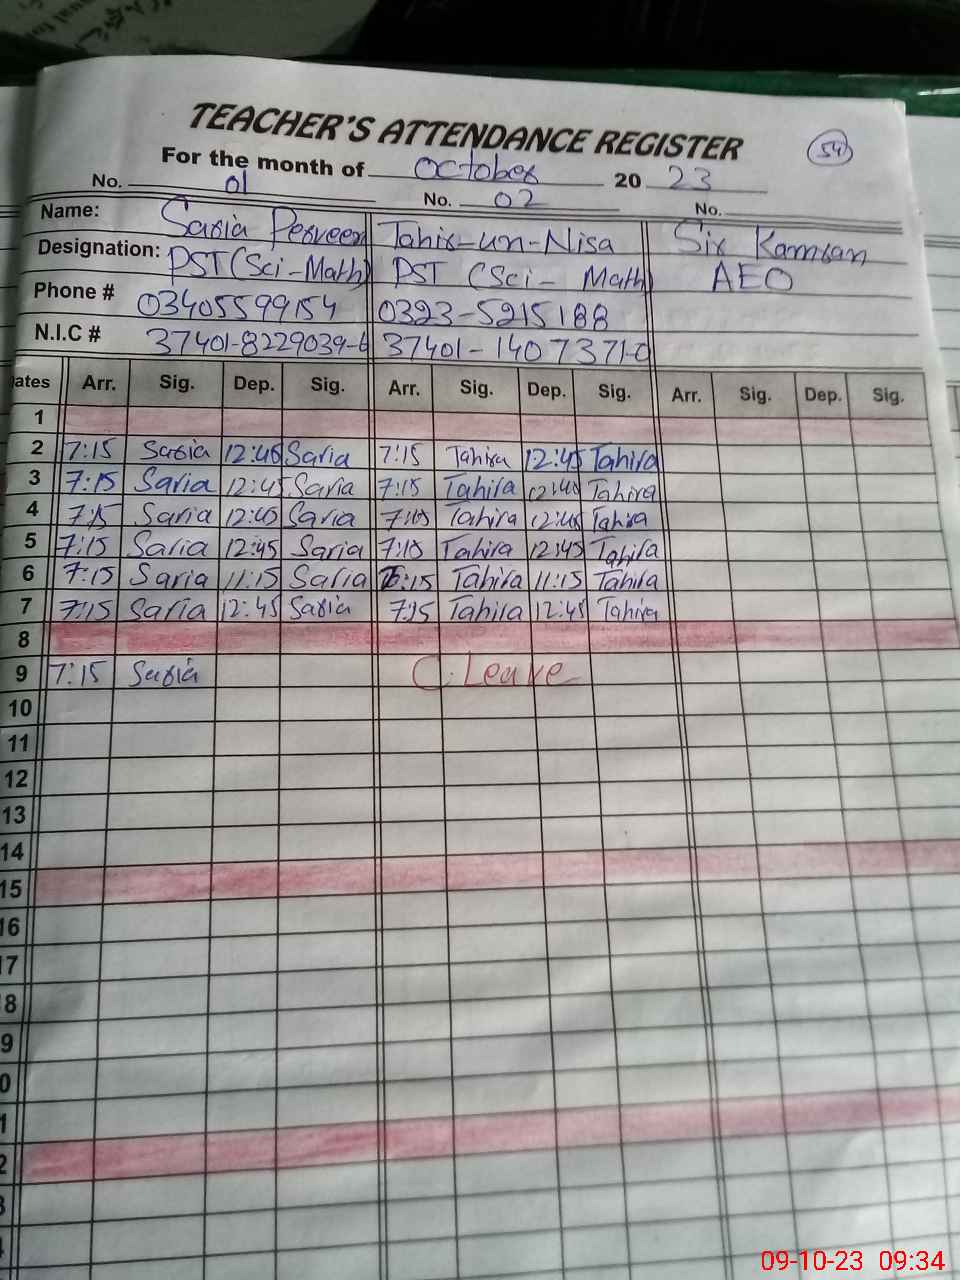 TEACHER'S ATTENDANCE REGISTER
54
For the month of October 20 23
No. 01 No. 02 No.
Name: Saria Perveen Tahir-un-Nisa Sir Kamran
Designation: PST (Sci-Math) PST (Sci-Math) AEO
Phone # 03405599154 0323-5215188
N.I.C # 37401-8229039-6 37401-1407371-0
ates Arr. Sig. Dep. Sig. Arr. Sig. Dep. Sig. Arr. Sig. Dep. Sig.
1
2 7:15 Saria 12:45 Saria 7:15 Tahira 12:45 Tahira
3 7:15 Saria 12:45 Saria 7:15 Tahira 12:45 Tahira
4 7:15 Saria 12:45 Saria 7:15 Tahira 12:45 Tahira
5 7:15 Saria 12:45 Saria 7:15 Tahira 12:45 Tahira
6 7:15 Saria 11:15 Saria 7:15 Tahira 11:15 Tahira
7 7:15 Saria 12:45 Saria 7:15 Tahira 12:45 Tahira
8
9 7:15 Saria C.Leave
10
11
12
13
14
15
16
17
8
9
0
1
2
3
4
09-10-23 09:34